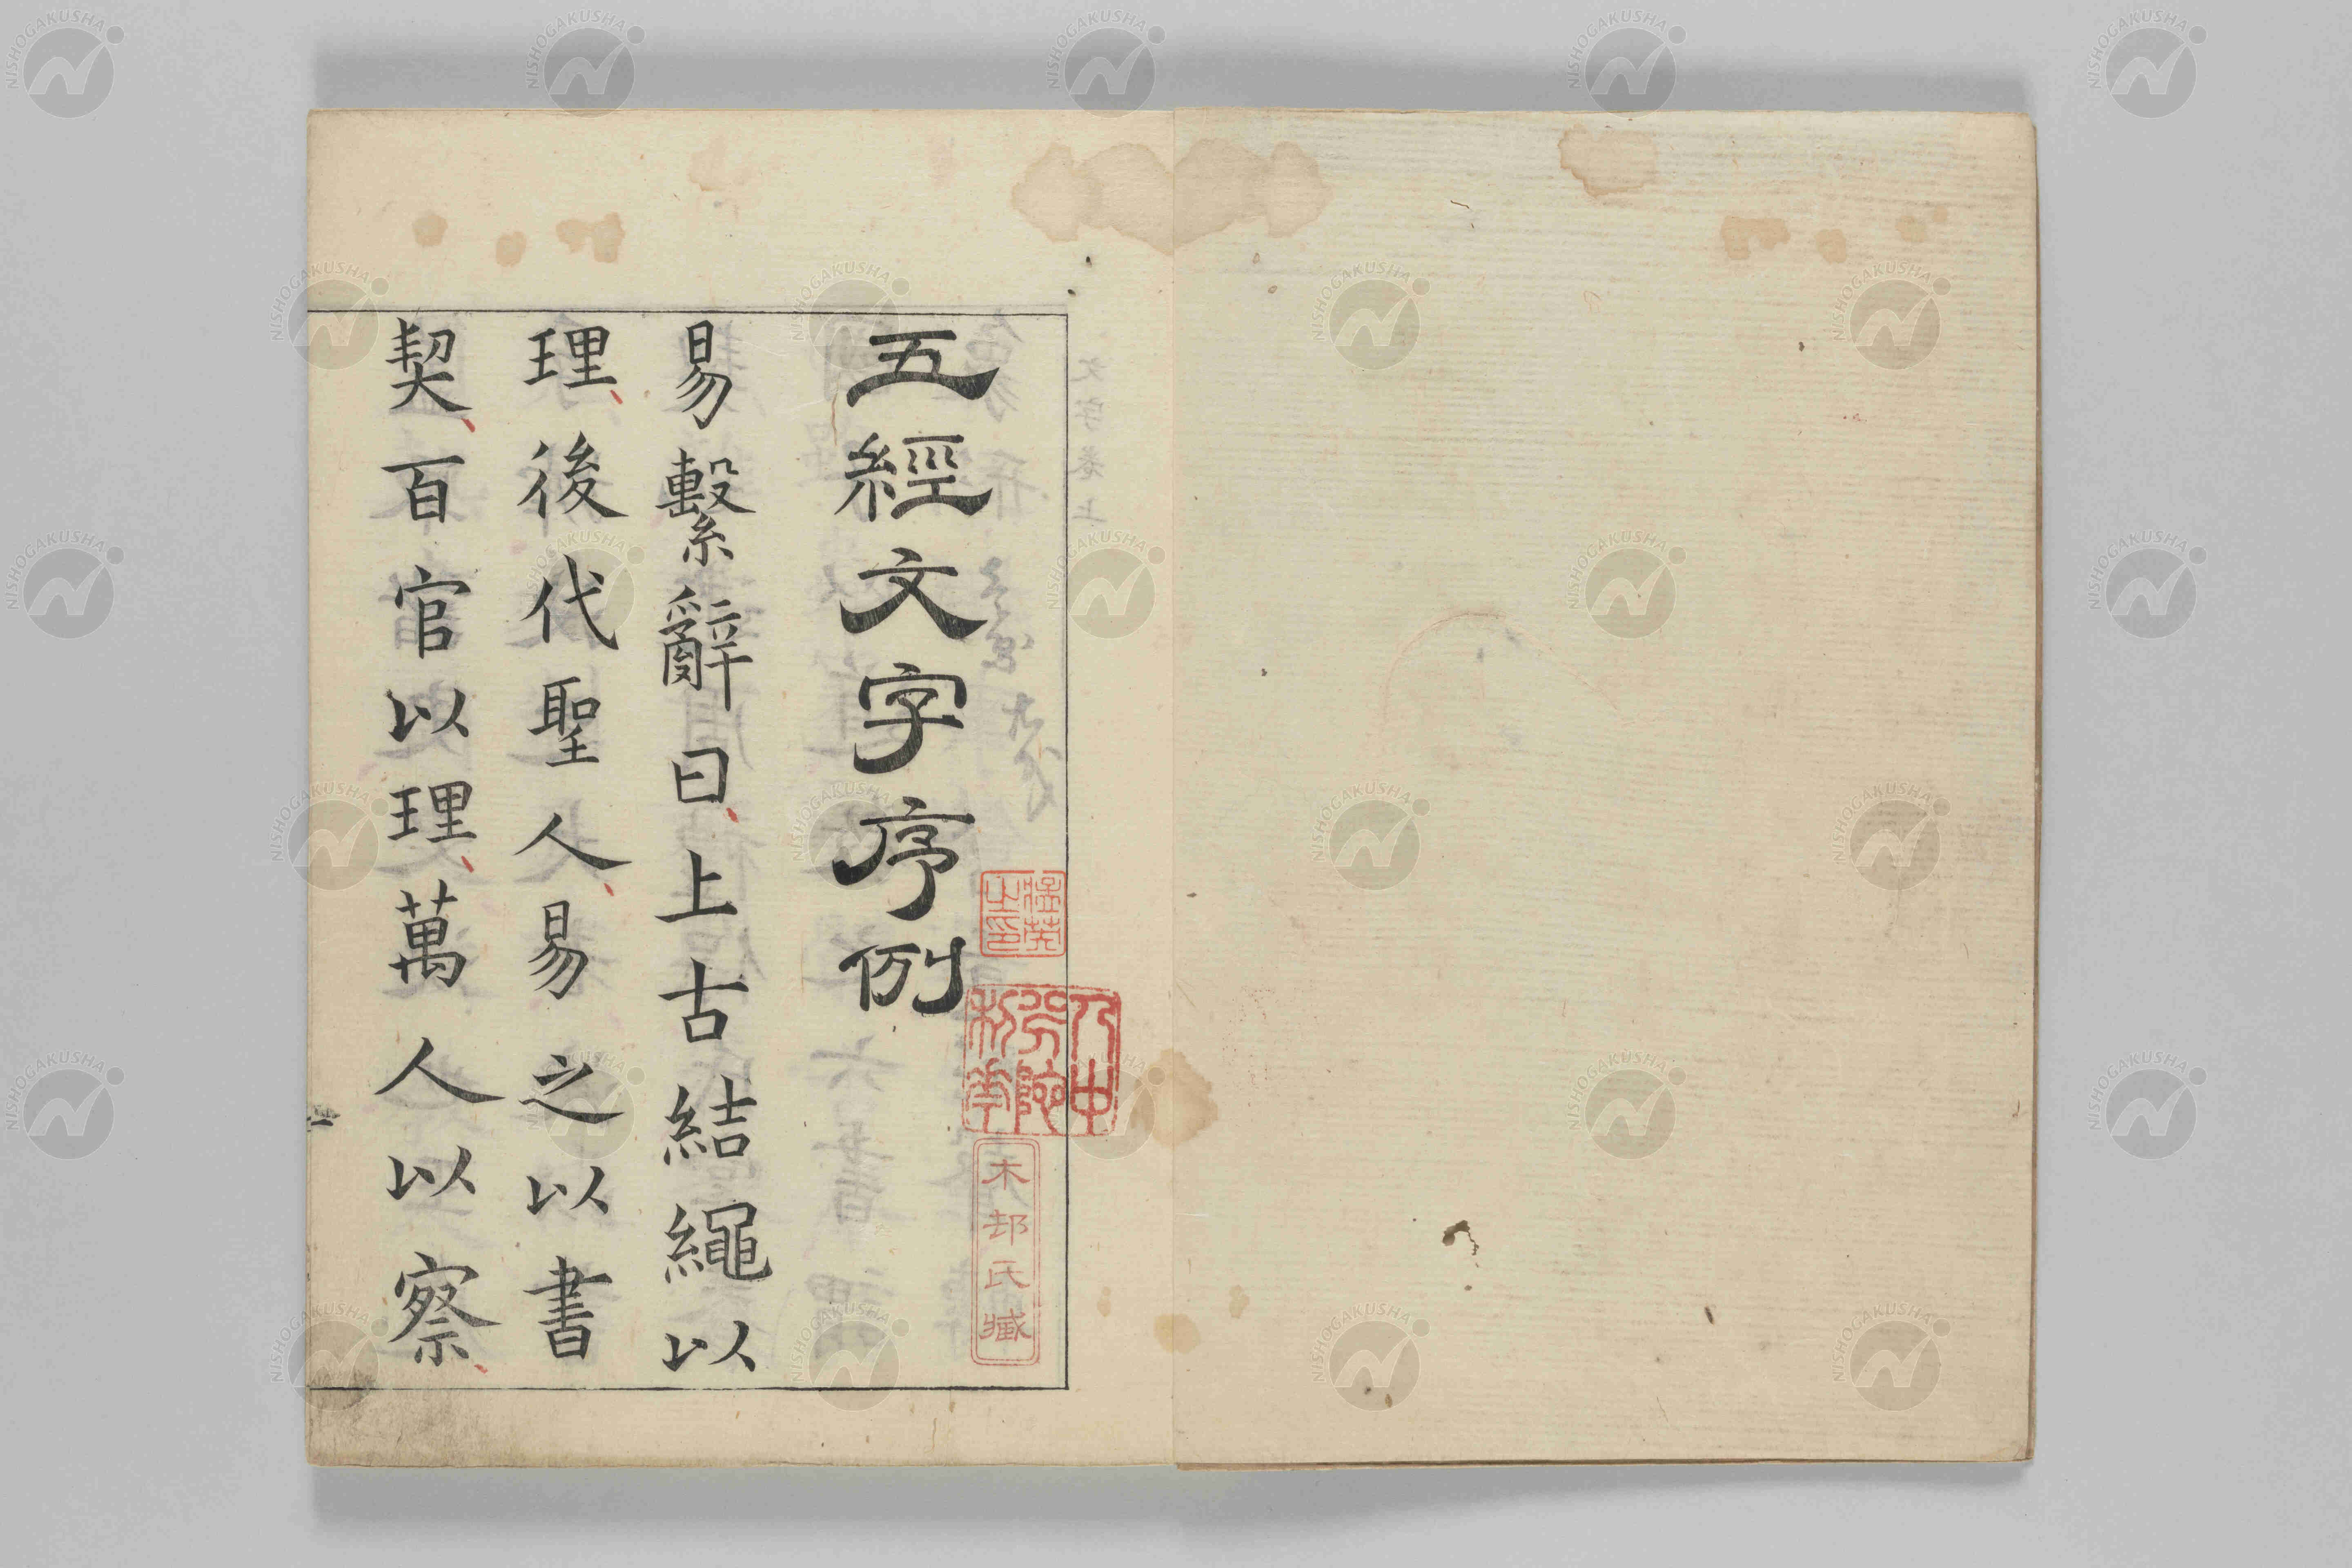 五經文字序例
易繫辭曰上古結繩以
理後代聖人易之以書
契百官以理萬人以察
木邨氏臧
NISHOGAKUSHA